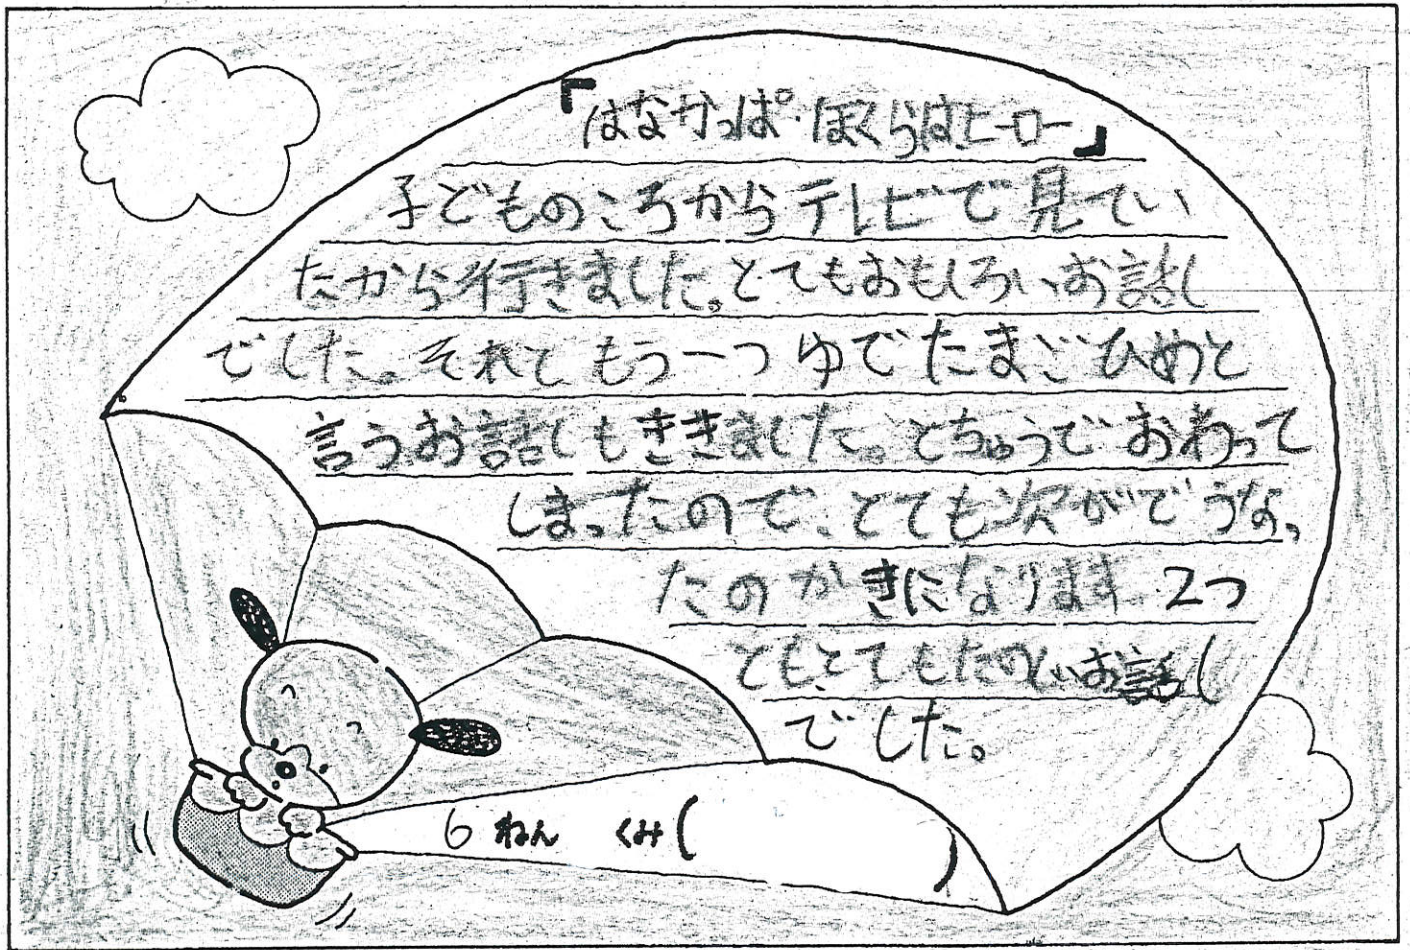 「はなかっぱ・ぼくらはヒーロー」
子どものころからテレビで見てい
たから行きました。とてもおもしろいお話し
でした。それともう一つゆでたまごひめと
言うお話しもききました。とちゅうでおわって
しまったので、とても次がどうなっ
たのかきになります。2つ
とも、とてもたのしいお話し
でした。
6 ねん くみ( )